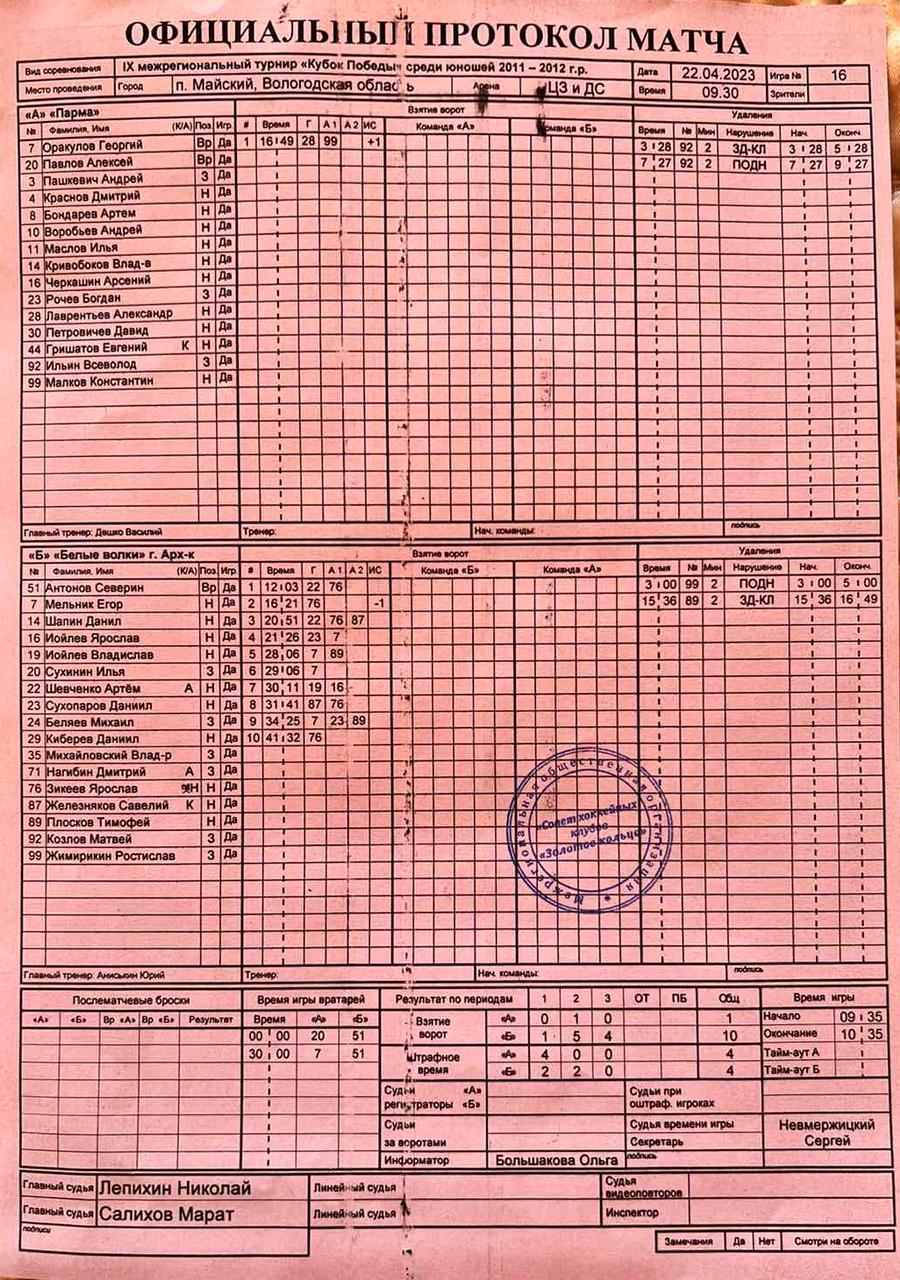 ОФИЦИАЛЬНЫЙ ПРОТОКОЛ МАТЧА
Вид соревнования IX межрегиональный турнир «Кубок Победы» среди юношей 2011 – 2012 г.р. Дата 22.04.2023 Игра № 16
Место проведения Город п. Майский, Вологодская область Арена ЦЗ и ДС Время 09.30 Зрители
«А» «Парма» Взятие ворот Удаления
№ Фамилия, Имя (К/А) Поз Игр. # Время Г А 1 А 2 ИС Команда «А» Команда «Б» Время № Мин Нарушение Нач. Оконч.
7 Оракулов Георгий Вр Да 1 16 49 28 99 +1 3 28 92 2 ЗД-КЛ 3 28 5 28
20 Павлов Алексей Вр Да 7 27 92 2 ПОДН 7 27 9 27
3 Пашкевич Андрей З Да
4 Краснов Дмитрий Н Да
8 Бондарев Артем Н Да
10 Воробьев Андрей Н Да
11 Маслов Илья Н Да
14 Кривобоков Влад-в Н Да
16 Черкашин Арсений Н Да
23 Рочев Богдан З Да
28 Лаврентьев Александр Н Да
30 Петровичев Давид Н Да
44 Гришатов Евгений К Н Да
92 Ильин Всеволод З Да
99 Малков Константин Н Да
Главный тренер: Дешко Василий Тренер: Нач. команды: подпись
«Б» «Белые волки» г. Арх-к Взятие ворот Удаления
№ Фамилия, Имя (К/А) Поз Игр. # Время Г А 1 А 2 ИС Команда «Б» Команда «А» Время № Мин Нарушение Нач. Оконч.
51 Антонов Северин Вр Да 1 12 03 22 76 3 00 99 2 ПОДН 3 00 5 00
7 Мельник Егор Н Да 2 16 21 76 -1 15 36 89 2 ЗД-КЛ 15 36 16 49
14 Шапин Данил Н Да 3 20 51 22 76 87
16 Иойлев Ярослав Н Да 4 21 26 23 7
19 Иойлев Владислав Н Да 5 28 06 7 89
20 Сухинин Илья З Да 6 29 06 7
22 Шевченко Артём А Н Да 7 30 11 19 16
23 Сухопаров Даниил Н Да 8 31 41 87 76
24 Беляев Михаил З Да 9 34 25 7 23 89
29 Киберев Даниил Н Да 10 41 32 76
35 Михайловский Влад-р З Да
71 Нагибин Дмитрий А З Да
76 Зикеев Ярослав Н Да
87 Железняков Савелий К Н Да
89 Плосков Тимофей Н Да
92 Козлов Матвей З Да
99 Жимирикин Ростислав З Да
Межрегиональная общественная организация
«Совет хоккейных
клубов
«Золотое кольцо»
Главный тренер: Аниськин Юрий Тренер: Нач. команды: подпись
Послематчевые броски Время игры вратарей Результат по периодам 1 2 3 ОТ ПБ Общ Время игры
«А» «Б» Вр «А» Вр «Б» Результат Время «А» «Б» Взятие ворот «А» 0 1 0 1 Начало 09 35
00 00 20 51 «Б» 1 5 4 10 Окончание 10 35
30 00 7 51 Штрафное время «А» 4 0 0 4 Тайм-аут А
«Б» 2 2 0 4 Тайм-аут Б
Судьи «А» Судьи при
регистраторы «Б» оштраф. игроках
Судьи Судья времени игры Невмержицкий
за воротами Секретарь Сергей
Информатор Большакова Ольга подпись
Главный судья Лепихин Николай Линейный судья Судья видеоповторов
Главный судья Салихов Марат Линейный судья Инспектор
подписи
Замечания Да Нет Смотри на обороте